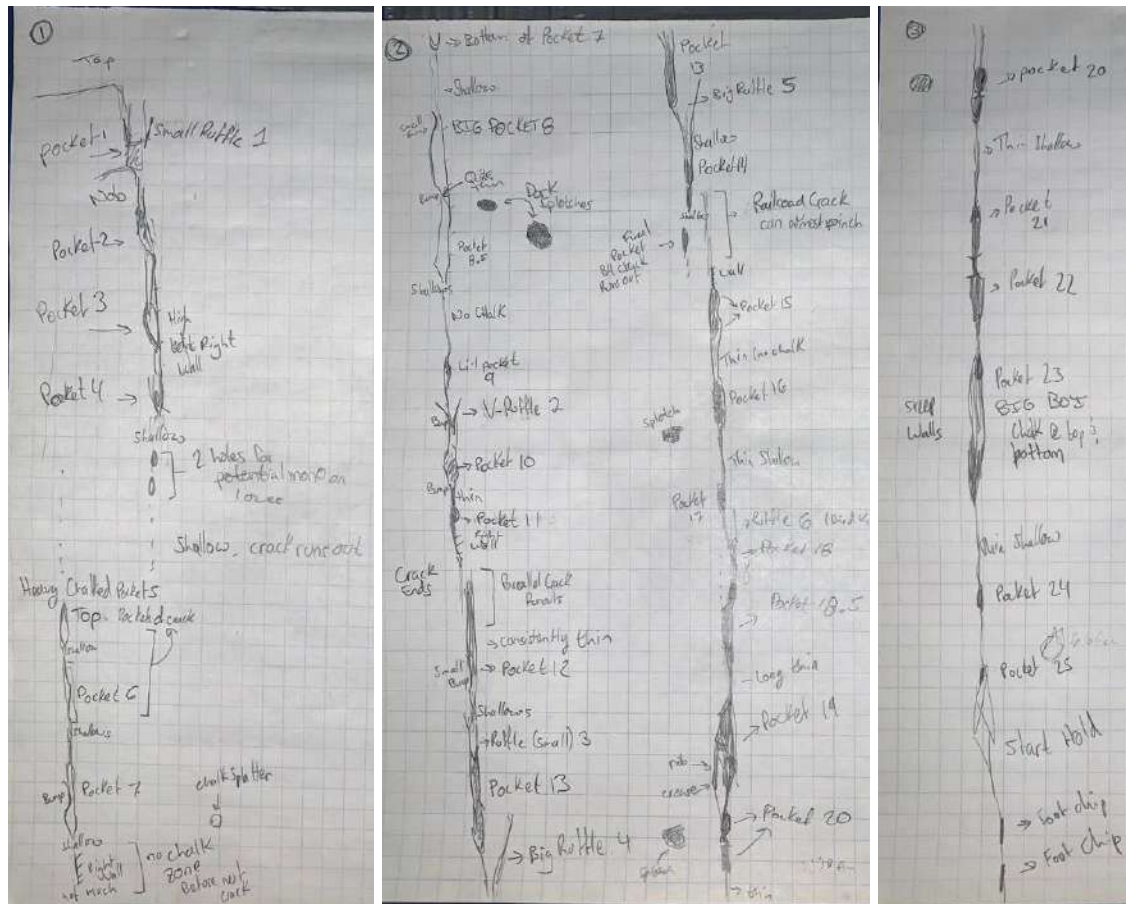 1
Top
Small Ruffle 1
Pocket 1
Nob
Pocket 2
Pocket 3
High
Right
Wall
Pocket 4
Shallow
2 holes for
potential mono on
Shallow, crack runs out
Heavy Chalked Pocket 5
Top
Shallow
Pocket 6
Shallows
Bump
Pocket 7
chalk splatter
Shallow
Right
Wall
not much
no chalk
zone
Before next
Crack
2
Bottom of Pocket 7
Shallow
Small
Bump
BIG POCKET 8
Quite
Thin
Bump
Dark
Splotches
Pocket
8.5
Shallows
No Chalk
Lil pocket
9
V-Ruffle 2
Bump
Pocket 10
Bump
thin
Pocket 11
Right
Wall
Crack
Ends
Parallel Crack
Runouts
consistently thin
Small
Bump
Pocket 12
Shallows
Ruffle (small) 3
Pocket 13
Big Ruffle 4
Pocket
13
Big Ruffle 5
Shallow
Pocket 14
Railroad Crack
can almost pinch
Shallow
Final
Pocket
B4 Crack
Runs out
Wall
Pocket 15
Thin (no chalk
Pocket 16
Splotch
Thin Shallow
Pocket
17
Ruffle 6
Pocket 18
Pocket 18.5
Long thin
Pocket 19
nob
Pocket 20
Splotch
thin
3
pocket 20
Thin Shallow
Pocket
21
Pocket 22
Pocket 23
BIG BOY
Chalk @ top &
bottom
Steep
Walls
Thin Shallow
Pocket 24
Pocket 25
Start Hold
Foot chip
Foot Chip